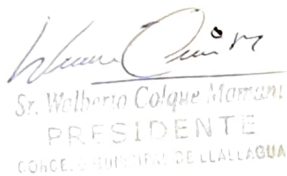 Sr. Walberto Colque Mamani
PRESIDENTE
CONCEJO MUNICIPAL DE LLALLAGUA